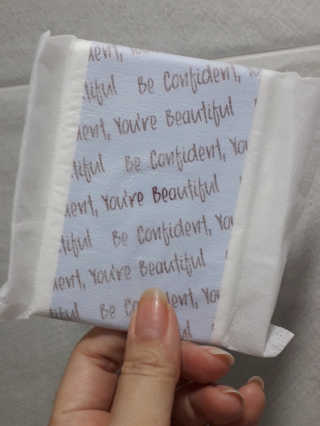 dent, You're Beautiful Be Confident,
tiful Be Confident, You
dent, You're Beautiful
tiful Be Confident, You
dent, You're Beautiful
tiful Be Confident, You
dent, You're Beautiful
tiful Be Con dent, You